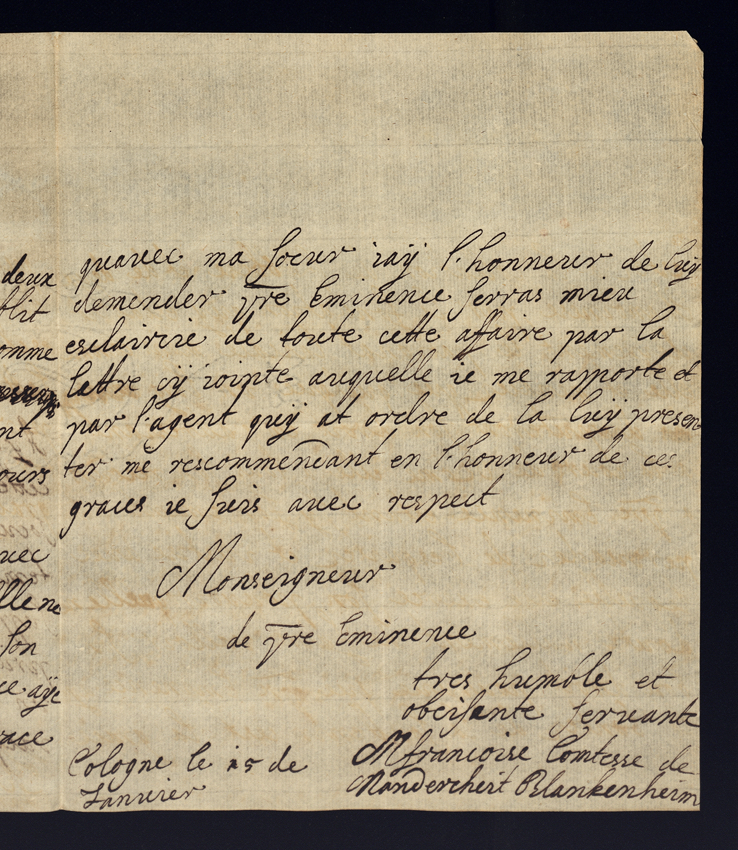 deux
blit
omme
nt
ours
vec
elle ne
son
ce aÿe
race
quavec ma soeur iaÿ l'honneur de luÿ
demender vre Eminence serras mieu
esclaircie de toute cette affaire par la
lettre cÿ iointe auquelle ie me rapporte et
par l'agent quÿ at ordre de la luÿ presen
ter me rescommencant en l'honneur de ces
graces ie suis avec respect
Monseigneur
de vre Eminence
tres humble et
obeisante servante
Mfrancoise Comtesse de
Manderscheit Blankenheim
Cologne le 15 de
Ianvier